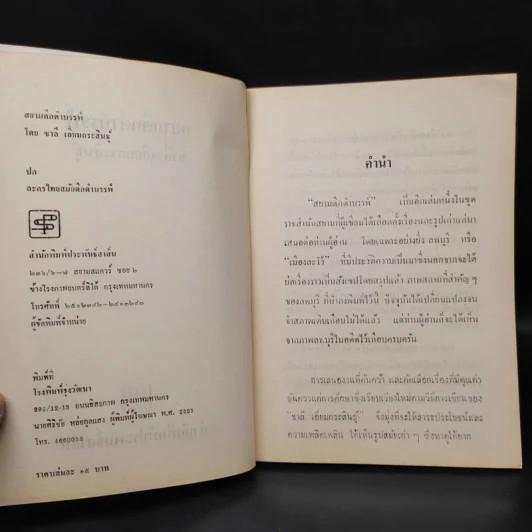 สยามดึกดำบรรพ์
โดย ชาลี เอี่ยมกระสินธุ์
ปก
ละครไทยสมัยดึกดำบรรพ์
สำนักพิมพ์ประพันธ์สาส์น
๒๓๖/๖-๗ สยามสแควร์ ซอย ๒
ข้างโรงภาพยนตร์ลิโด้ กรุงเทพมหานคร
โทรศัพท์
ผู้จัดพิมพ์จำหน่าย
พิมพ์ที่
โรงพิมพ์รุ่งวัฒนา
296/12-13 ถนนอิสรภาพ กรุงเทพมหานคร
นายศิริชัย หล่อกุลแสง ผู้พิมพ์ผู้โฆษณา พ.ศ. 2521
โทร. 4660015
ราคาเล่มละ ๑๕ บาท
คำนำ
"สยามดึกดำบรรพ์" เป็นอีกเล่มหนึ่งในชุด
ราชสำนักสยามที่ผู้เขียนได้เลือกทั้งเรื่องและรูปเก่าแก่มา
เสนอต่อท่านผู้อ่าน โดยเฉพาะอย่างยิ่ง ลพบุรี หรือ
"เมืองละโว้" ที่มีประวัติความเป็นมาซึ่งนอกจากจะได้
ย่อเรื่องราวที่น่าสังเขปโดยสรุปแล้ว ภาพสถานที่สำคัญ ๆ
ของลพบุรี ที่นำลงพิมพ์ไว้ใน ปัจจุบันได้เปลี่ยนแปลงจน
จำสภาพเดิมเกือบไม่ได้แล้ว แต่ท่านผู้อ่านก็จะได้เห็น
จากภาพลพบุรีในอดีตไว้เกือบครบครัน
การเสนองานที่ค้นคว้า และคัดเลือกเรื่องที่มีคุณค่า
อันควรแก่การศึกษาซึ่งเรียบเรียงใหม่ตามวิธีการเขียนของ
"ชาลี เอี่ยมกระสินธุ์" จึงมุ่งที่จะให้สาระประโยชน์และ
ความเพลิดเพลิน ได้เห็นรูปสมัยเก่า ๆ ซึ่งหาดูได้ยาก